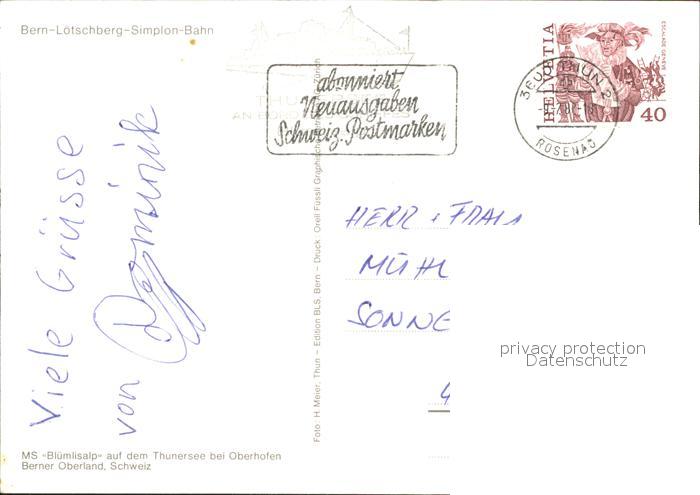 Bern-Lötschberg-Simplon-Bahn
Viele Grüsse
von Dominik
MS «Blümlisalp» auf dem Thunersee bei Oberhofen
Berner Oberland, Schweiz
Foto: H. Meier, Thun – Edition BLS, Bern – Druck: Orell Füssli Graphische Zürich
abonniert
Neuausgaben
Schweiz. Postmarken
3600 THUN 2
ROSENAU
HELVETIA
ESCALADE GENÈVE
40
HERR + FRAU
MÜHL
SONNE
4
privacy protection
Datenschutz